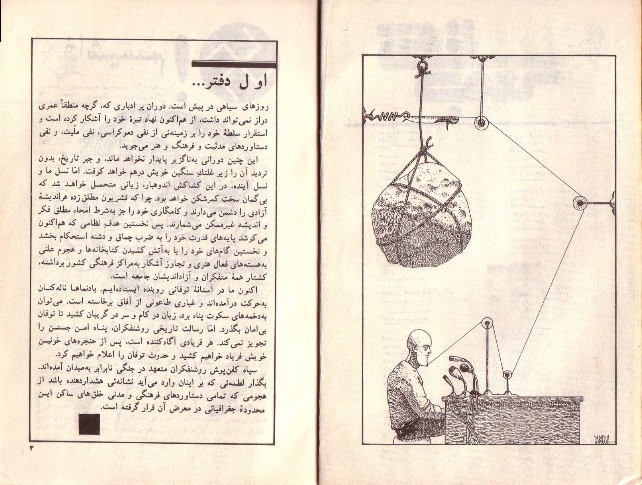 اول دفتر...
روزهای سیاهی در پیش است. دوران پر ادباری که، گرچه منطقاً عمری
دراز نمی‌تواند داشت، از هم‌اکنون نهاد تیرهٔ خود را آشکار کرده است و
استقرار سلطهٔ خود را بر زمینه‌ئی از نفی دموکراسی، نفی ملیت، و نفی
دستاوردهای مدنیت و فرهنگ و هنر می‌جوید.
این چنین دورانی به‌ناگزیر پایدار نخواهد ماند، و جبر تاریخ، بدون
تردید آن را زیر غلتک سنگین خویش درهم خواهد کوفت. امّا نسل ما و
نسل آینده، در این کشاکش اندوهبار، زیانی متحمل خواهد شد که
بی‌گمان سخت کمرشکن خواهد بود. چرا که قشریون مطلق‌زده هر اندیشهٔ
آزادی را دشمن می‌دارند و کامگاری خود را جز به‌شرط امحاء مطلق فکر
و اندیشه غیرممکن می‌شمارند. پس نخستین هدف نظامی که هم‌اکنون
می‌کوشد پایه‌های قدرت خود را به ضرب چماق و دشنه استحکام بخشد
و نخستین گام‌های خود را با به‌آتش کشیدن کتابخانه‌ها و هجوم علنی
به‌هسته‌های فعال هنری و تجاوز آشکار به‌مراکز فرهنگی کشور برداشته،
کشتار همهٔ متفکران و آزاداندیشان جامعه است.
اکنون ما در آستانهٔ توفانی روبنده ایستاده‌ایم. بادنماها ناله‌کنان
به‌حرکت درآمده‌اند و غباری طاعونی از آفاق برخاسته است. می‌توان
به‌دخمه‌های سکوت پناه برد، زبان در کام و سر در گریبان کشید تا توفان
بی‌امان بگذرد. امّا رسالت تاریخی روشنفکران، پناه امن جستن را
تجویز نمی‌کند. هر فریادی آگاه‌کننده است، پس از حنجره‌های خونین
خویش فریاد خواهیم کشید و حدوث توفان را اعلام خواهیم کرد.
سپاه کفن‌پوش روشنفکران متعهد در جنگی نابرابر به‌میدان آمده‌اند.
بگذار لطمه‌ئی که بر اینان وارد می‌آید نشانه‌ئی هشداردهنده باشد از
هجومی که تمامی دستاوردهای فرهنگی و مدنی خلق‌های ساکن این
محدودهٔ جغرافیائی در معرض آن قرار گرفته است.
۳